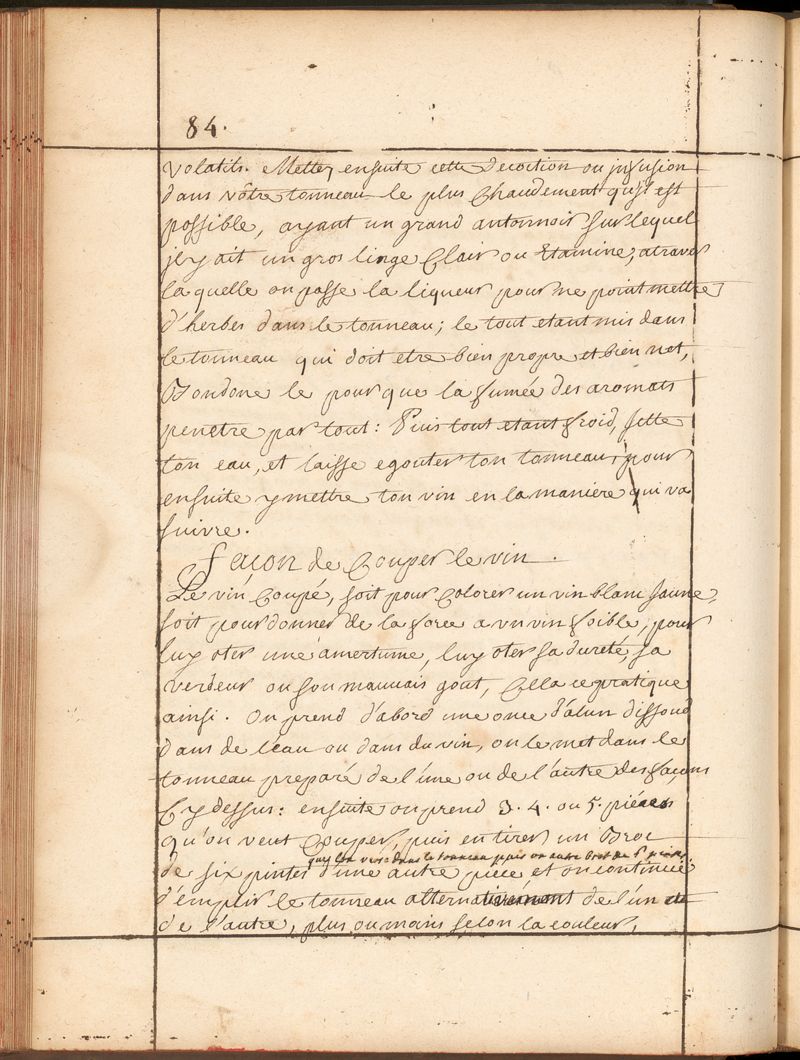 84.
volatils. Mettez ensuite cette decoction ou jnfusion
dans vôtre tonneau le plus Chaudement qu'jl est
possible, ayant un grand antonnoir sur lequel
jl y ait un gros linge Clair ou Etamine, atravers
laquelle on passe la liqueur pour ne point mettre
d'herbes dans le tonneau; le tout etant mis dans
le tonneau qui doit etre bien propre et bien net,
Bondone le pour que la fumée des aromats
penetre par tout: Puis tout etant froid, jette
ton eau, et laisse egouter ton tonneau, pour
ensuite y mettre ton vin en la maniere qui va
suivre.
façon de Couper le vin.
Le vin Coupé, soit pour Colorer un vin blanc Jaune,
soit pour donner de la force a un vin foible, pour
luy oter une amertume, luy oter sa dureté, sa
verdeur ou son mauvais gout, Cella ce pratique
ainsi. On prend d'abord une once d'alun dissoud
dans de l'eau ou dans du vin, on le met dans le
tonneau preparé de l'une ou de l'autre des façons
Cy dessus: ensuite on prend 3. 4. ou 5. piéces
qu'on veut Couper, puis en tirer un Broc
que l'on verse dans le tonneau puis un autre broc de
de six pintes d'une autre piece, et on continue
d'emplir le tonneau alternativement de l'un et
de l'autre, plus ou moins selon la couleur,